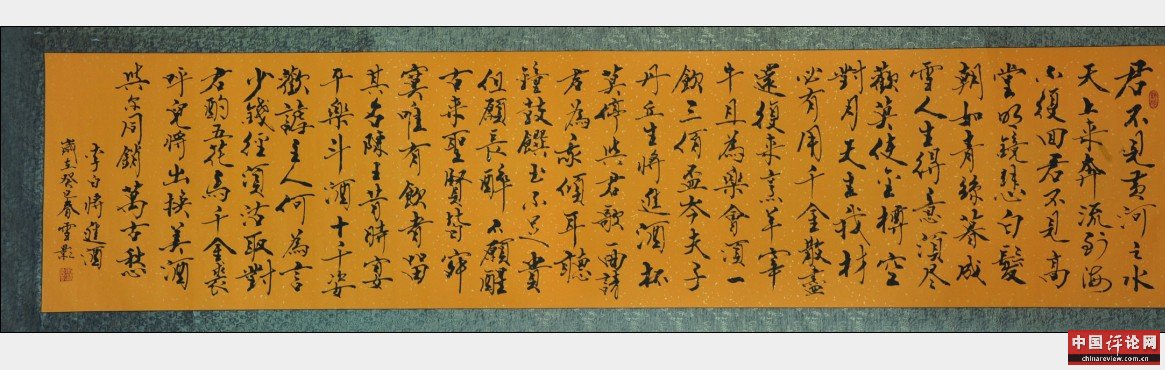 君不見黃河之水
天上来奔流到海
不復回君不見高
堂明鏡悲白髮
朝如青絲暮成
雪人生得意須尽
歡莫使金樽空
對月天生我材
必有用千金散盡
還復来烹羊宰
牛且為樂會須一
飲三百盃岑夫子
丹丘生將進酒杯
莫停與君歌一曲請
君為我傾耳聽
鐘鼓饌玉不足貴
但願長醉不願醒
古来聖賢皆寂
寞唯有飲者留
其名陳王昔時宴
平樂斗酒十千恣
歡謔主人何為言
少錢徑須沽取對
君酌五花馬千金裘
呼兒將出換美酒
與尔同銷萬古愁
李白將進酒
歲在癸巳春雲影
中国评论网
chinareview.com.cn